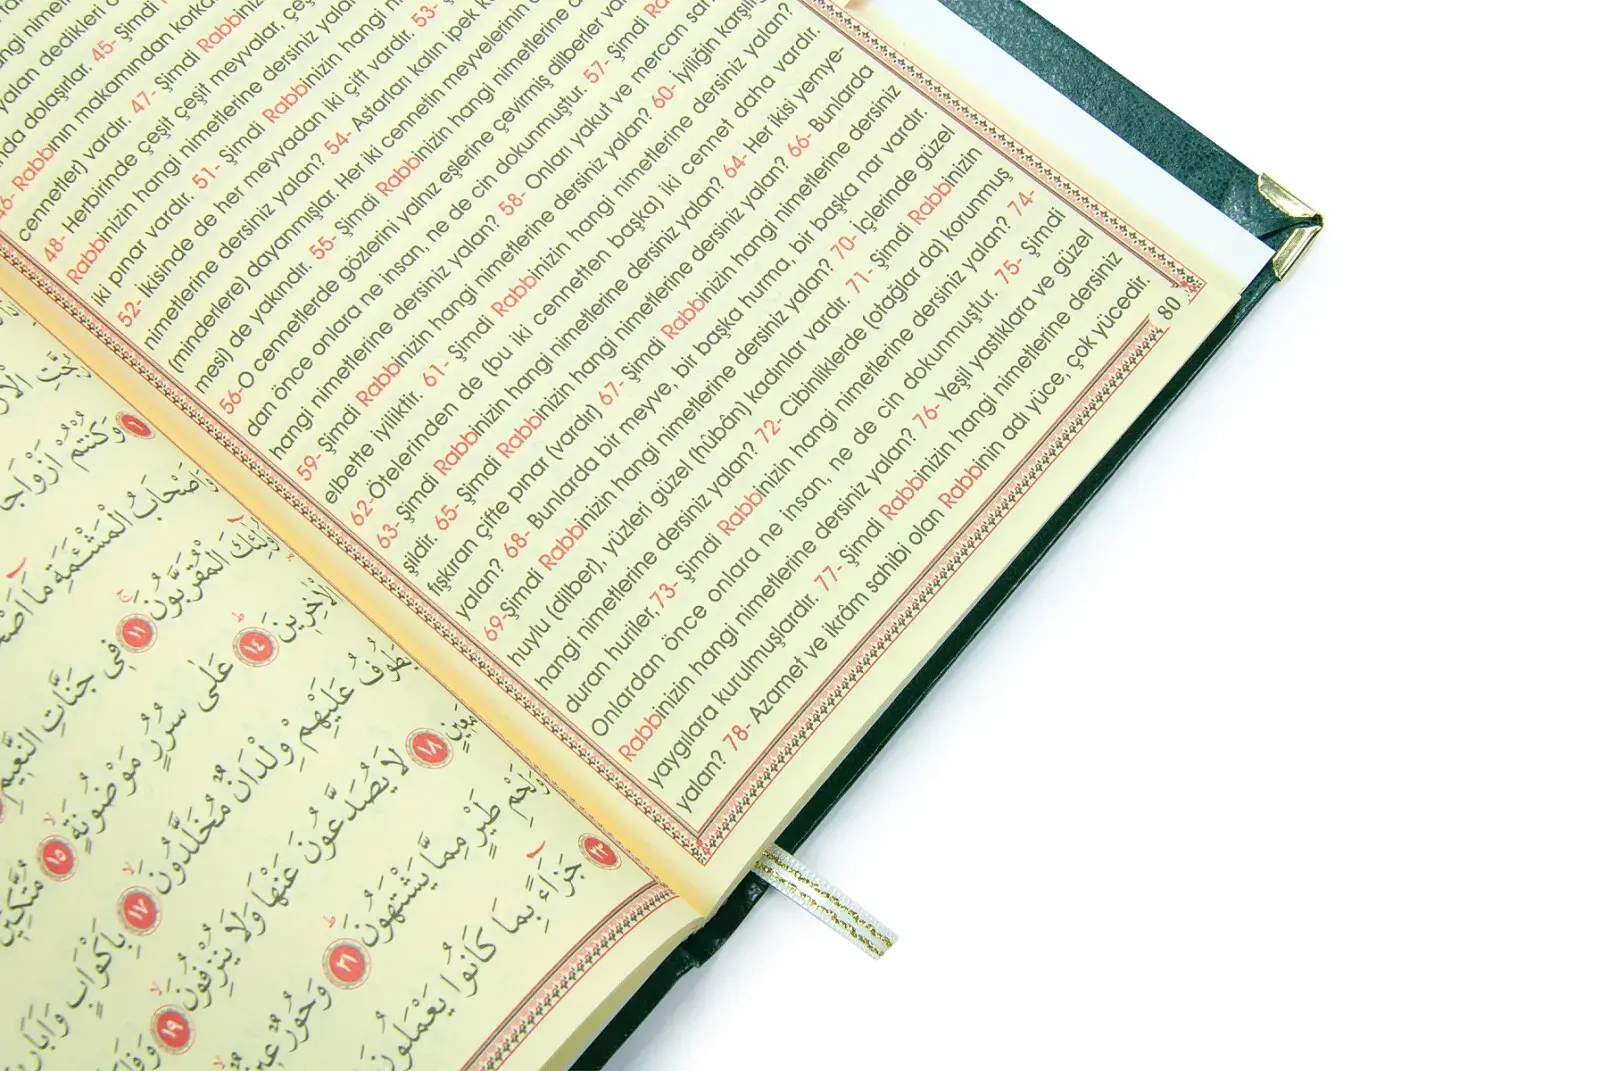 45- Şimdi
46- Rabbinin makamından korka
cennetler) vardır. 47- Şimdi Rabbinizin
48- Herbirinde çeşit çeşit meyvalar, çeş
Rabbinizin hangi nimetlerine dersiniz yalan
iki pınar vardır. 51- Şimdi Rabbinizin hangi
52- İkisinde de her meyvadan iki çift vardır. 53- Ş
nimetlerine dersiniz yalan? 54- Astarları kalın ipek k
(minderlere) dayanmışlar. Her iki cennetin meyvelerinin
mesi) de yakındır. 55- Şimdi Rabbinizin hangi nimetlerine
56-O cennetlerde gözlerini yalnız eşlerine çevirmiş dilberler var
dan önce onlara ne insan, ne de cin dokunmuştur. 57- Şimdi Ra
hangi nimetlerine dersiniz yalan? 58- Onları yakut ve mercan san
59- Şimdi Rabbinizin hangi nimetlerine dersiniz yalan? 60- İyiliğin karşılı
elbette iyiliktir. 61- Şimdi Rabbinizin hangi nimetlerine dersiniz yalan?
62-Ötelerinden de (bu iki cennetten başka) iki cennet daha vardır.
63- Şimdi Rabbinizin hangi nimetlerine dersiniz yalan? 64- Her ikisi yemye-
şildir. 65- Şimdi Rabbinizin hangi nimetlerine dersiniz yalan? 66- Bunlarda
fışkıran çifte pınar (vardır) 67- Şimdi Rabbinizin hangi nimetlerine dersiniz
yalan? 68- Bunlarda bir meyve, bir başka hurma, bir başka nar vardır.
69-Şimdi Rabbinizin hangi nimetlerine dersiniz yalan? 70- İçlerinde güzel
huylu (dilber), yüzleri güzel (hûbân) kadınlar vardır. 71- Şimdi Rabbinizin
hangi nimetlerine dersiniz yalan? 72- Cibinliklerde (otağlar da) korunmuş
duran huriler,73- Şimdi Rabbinizin hangi nimetlerine dersiniz yalan? 74-
Onlardan önce onlara ne insan, ne de cin dokunmuştur. 75- Şimdi
Rabbinizin hangi nimetlerine dersiniz yalan? 76- Yeşil yastıklara ve güzel
yaygılara kurulmuşlardır. 77- Şimdi Rabbinizin hangi nimetlerine dersiniz
yalan? 78- Azamet ve ikrâm sahibi olan Rabbinin adı yüce, çok yücedir.
80
وَكُنْتُمْ اَزْوَاجًا
وَاَصْحَابُ الْمَشْئَمَةِ مَا اَصْحَ
الْمُقَرَّبُونَ ﴿١١﴾ فِى جَنَّاتِ النَّعِيمِ
الْاٰخِرِينَ ﴿١٤﴾ عَلٰى سُرُرٍ مَوْضُونَةٍ ﴿١٥﴾ مُتَّكِـِٔينَ
يَطُوفُ عَلَيْهِمْ وِلْدَانٌ مُخَلَّدُونَ ﴿١٧﴾ بِاَكْوَابٍ وَاَبَارِيقَ
مَعِينٍ ﴿١٨﴾ لَا يُصَدَّعُونَ عَنْهَا وَلَا يُنْزِفُونَ ﴿١٩﴾
وَلَحْمِ طَيْرٍ مِمَّا يَشْتَهُونَ ﴿٢١﴾ وَحُورٌ عِينٌ
جَزَاءً بِمَا كَانُوا يَعْمَلُونَ